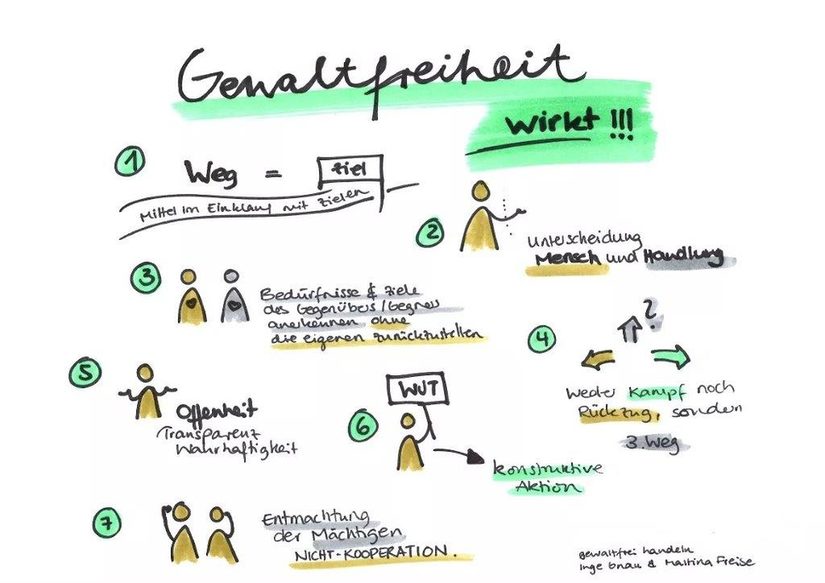 Gewaltfreiheit
wirkt !!!
1
Weg = Ziel
Mittel im Einklang mit Zielen
2
Unterscheidung
Mensch und Handlung
3
Bedürfnisse & Ziele
des Gegenübers/Gegners
anerkennen ohne
die eigenen zurückzustellen
4
?
Weder Kampf noch
Rückzug, sondern
3. Weg
5
Offenheit
Transparenz
Wahrhaftigkeit
6
WUT
konstruktive
Aktion
7
Entmachtung
der Mächtigen
NICHT-KOOPERATION.
gewaltfrei handeln
Inge & Martina Freise